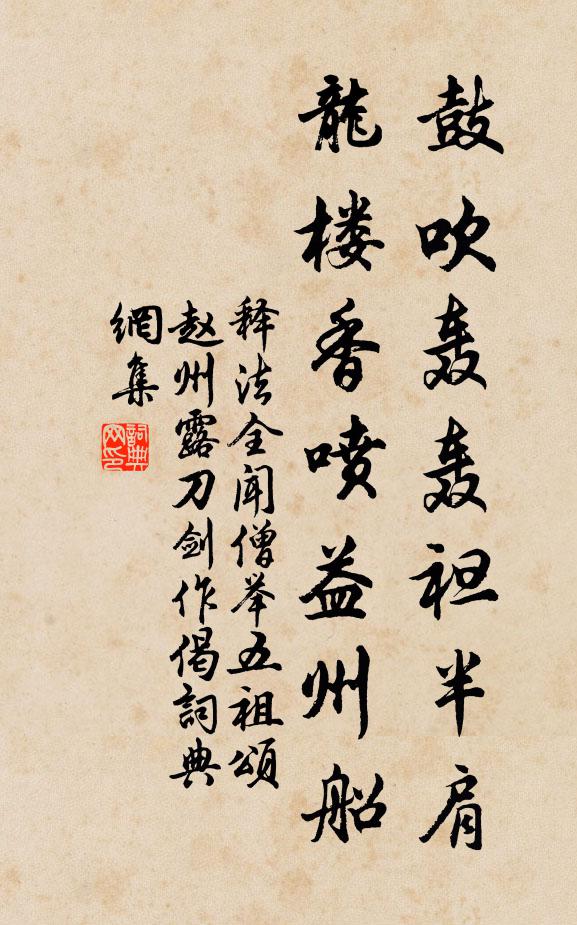 鼓吹轰轰袒半肩
龍楼香喷益州船
释法全闻僧举五祖頌
赵州露刀剑作偈詞典
網集
詞典
网印